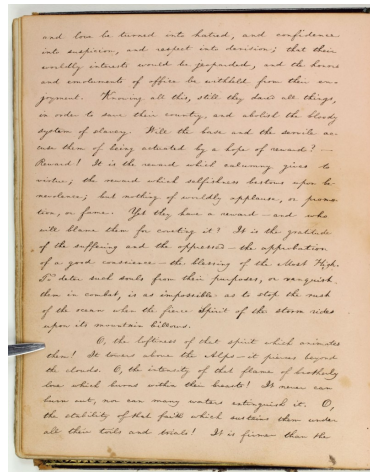 and love be turned into hatred, and confidence
into suspicion, and respect into derision; that their
worldly interests would be jeoparded, and the honors
and emoluments of office be withheld from their en-
joyment. Knowing all this, still they dared all things,
in order to save their country, and abolish the bloody
system of slavery. Will the base and the servile ac-
cuse them of being actuated by a hope of reward? —
Reward! It is the reward which calumny gives to
virtue; the reward which selfishness bestows upon be-
nevolence; but nothing of worldly applause, or promo-
tion, or fame. Yet they have a reward — and who
will blame them for coveting it? It is the gratitude
of the suffering and the oppressed — the approbation
of a good conscience — the blessing of the Most High.
To deter such souls from their purposes, or vanquish
them in combat, is as impossible as to stop the rush
of the ocean when the fierce Spirit of the storm rides
upon its mountain billows.
O, the loftiness of that spirit which animates
them! It towers above the Alps — it pierces beyond
the clouds. O, the intensity of that flame of brotherly
love which burns within their breasts! It never can
burn out, nor can many waters extinguish it. O,
the stability of that faith which sustains them under
all their toils and trials! It is firmer than the